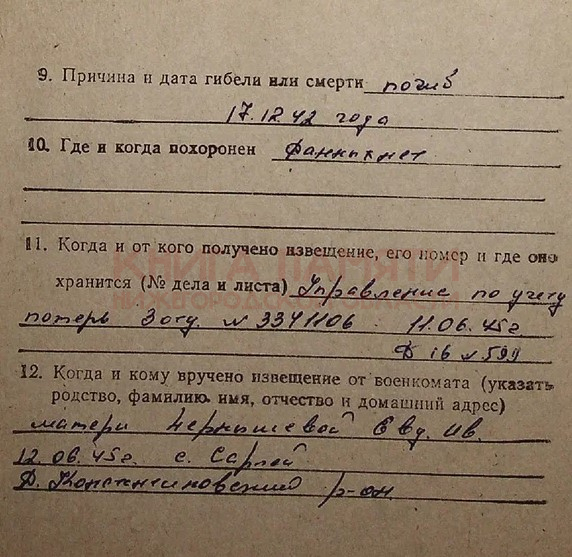 9. Причина и дата гибели или смерти погиб
17.12.42 года
10. Где и когда похоронен данных нет
11. Когда и от кого получено извещение, его номер и где оно
КНИГА ПАМЯТИ
хранится (№ дела и листа) Управление по учету
НИЖЕГОРОДСКОЙ ОБЛАСТИ
потерь 3 отд. № 3341106 11.06.45г
Д 16 № 599
12. Когда и кому вручено извещение от военкомата (указать
родство, фамилию, имя, отчество и домашний адрес)
матери Чернышевой Евд. Ив.
12.06.45г. с. Сарлей
Д. Константиновский р-он